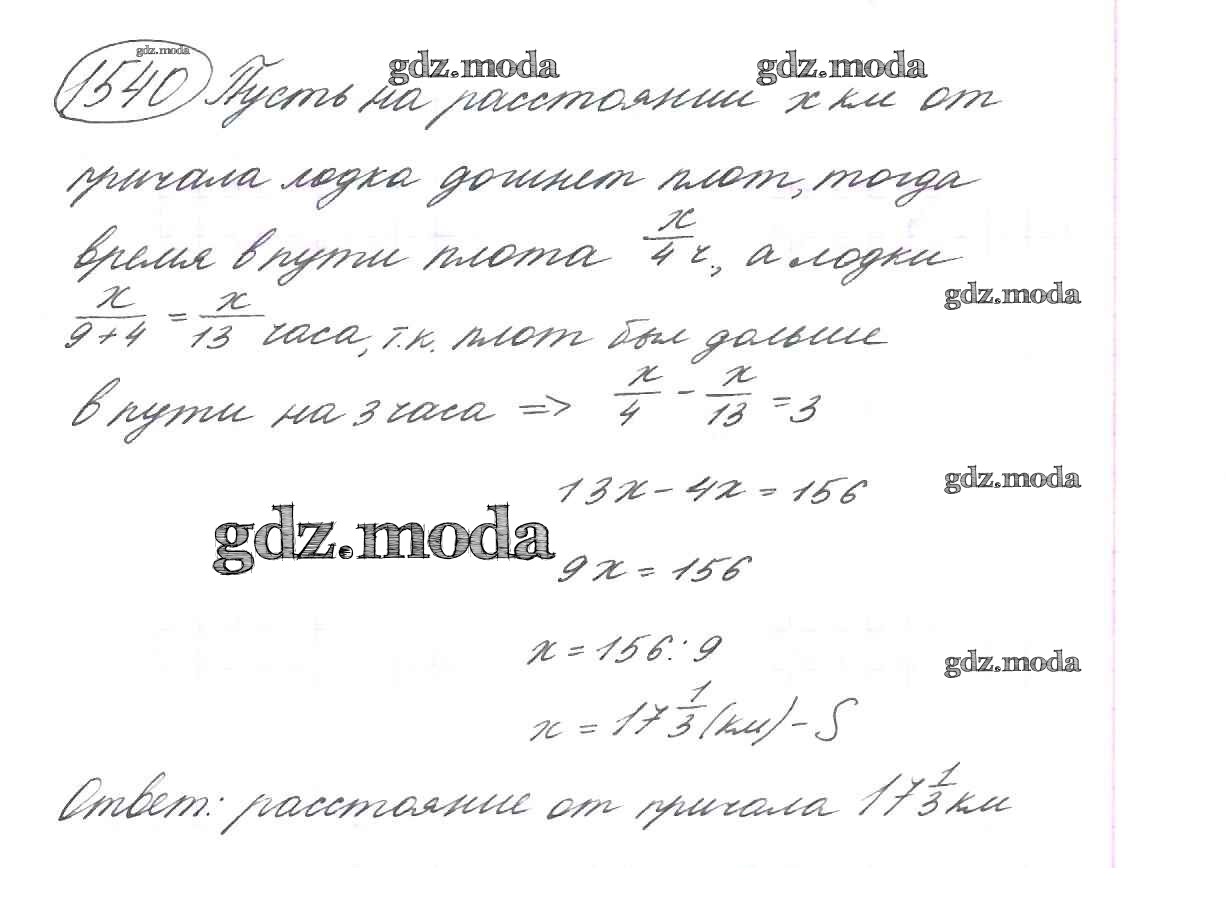 gdz.moda
gdz.moda gdz.moda
1540 Пусть на расстоянии x км от
причала лодка догонет плот, тогда
время в пути плота x/4 ч, а лодки
gdz.moda
x/(9+4) = x/13 часа, т.к. плот был дольше
в пути на 3 часа => x/4 - x/13 = 3
gdz.moda
13x - 4x = 156
gdz.moda
9x = 156
x = 156 : 9
gdz.moda
x = 17 1/3 (км) - S
Ответ: расстояние от причала 17 1/3 км